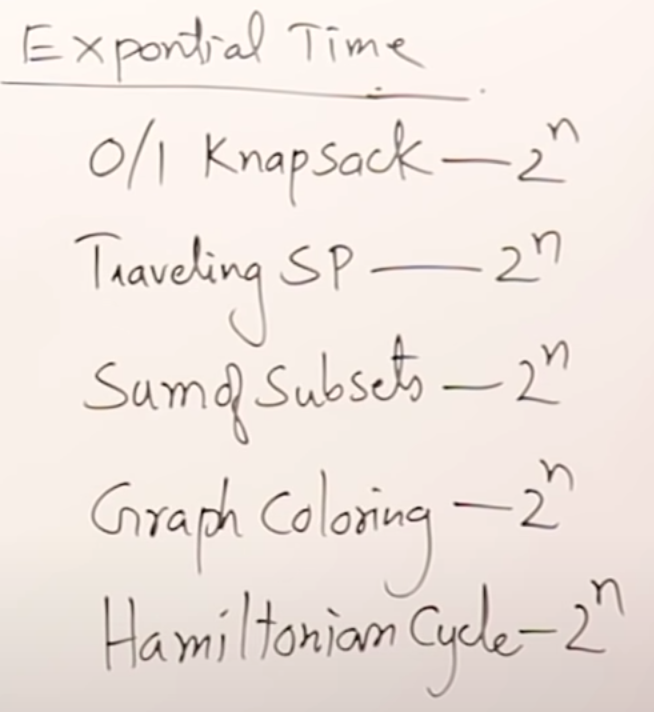 Expontial Time
0/1 Knapsack — 2ⁿ
Traveling SP — 2ⁿ
Sum of Subsets — 2ⁿ
Graph Coloring — 2ⁿ
Hamiltonian Cycle — 2ⁿ